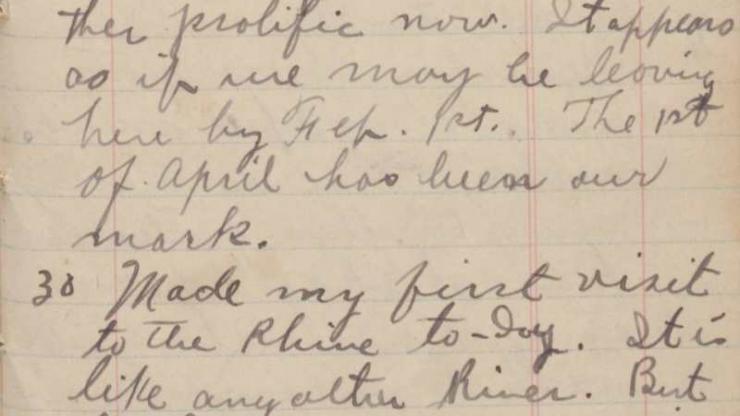 ther prolific now. It appears
as if we may be leaving
here by Feb. 1st. The 1st
of April has been our
mark.
30 Made my first visit
to the Rhine to-day. It is
like any other River. But